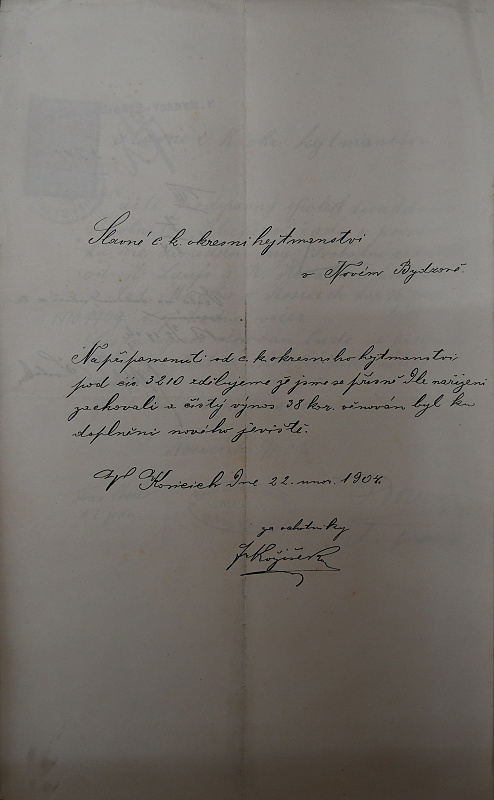 Slavné c. k. okresní hejtmanství
v Novém Bydžově.
Na připomenutí od c. k. okresního hejtmanství
pod čís. 3210 sdělujeme že jsme se přísně dle nařízení
zachovali a čistý výnos 38 kor. věnován byl ku
doplnění nového jeviště.
V Konicích dne 22. unor. 1904.
za ochotníky
Fr Kožíšek